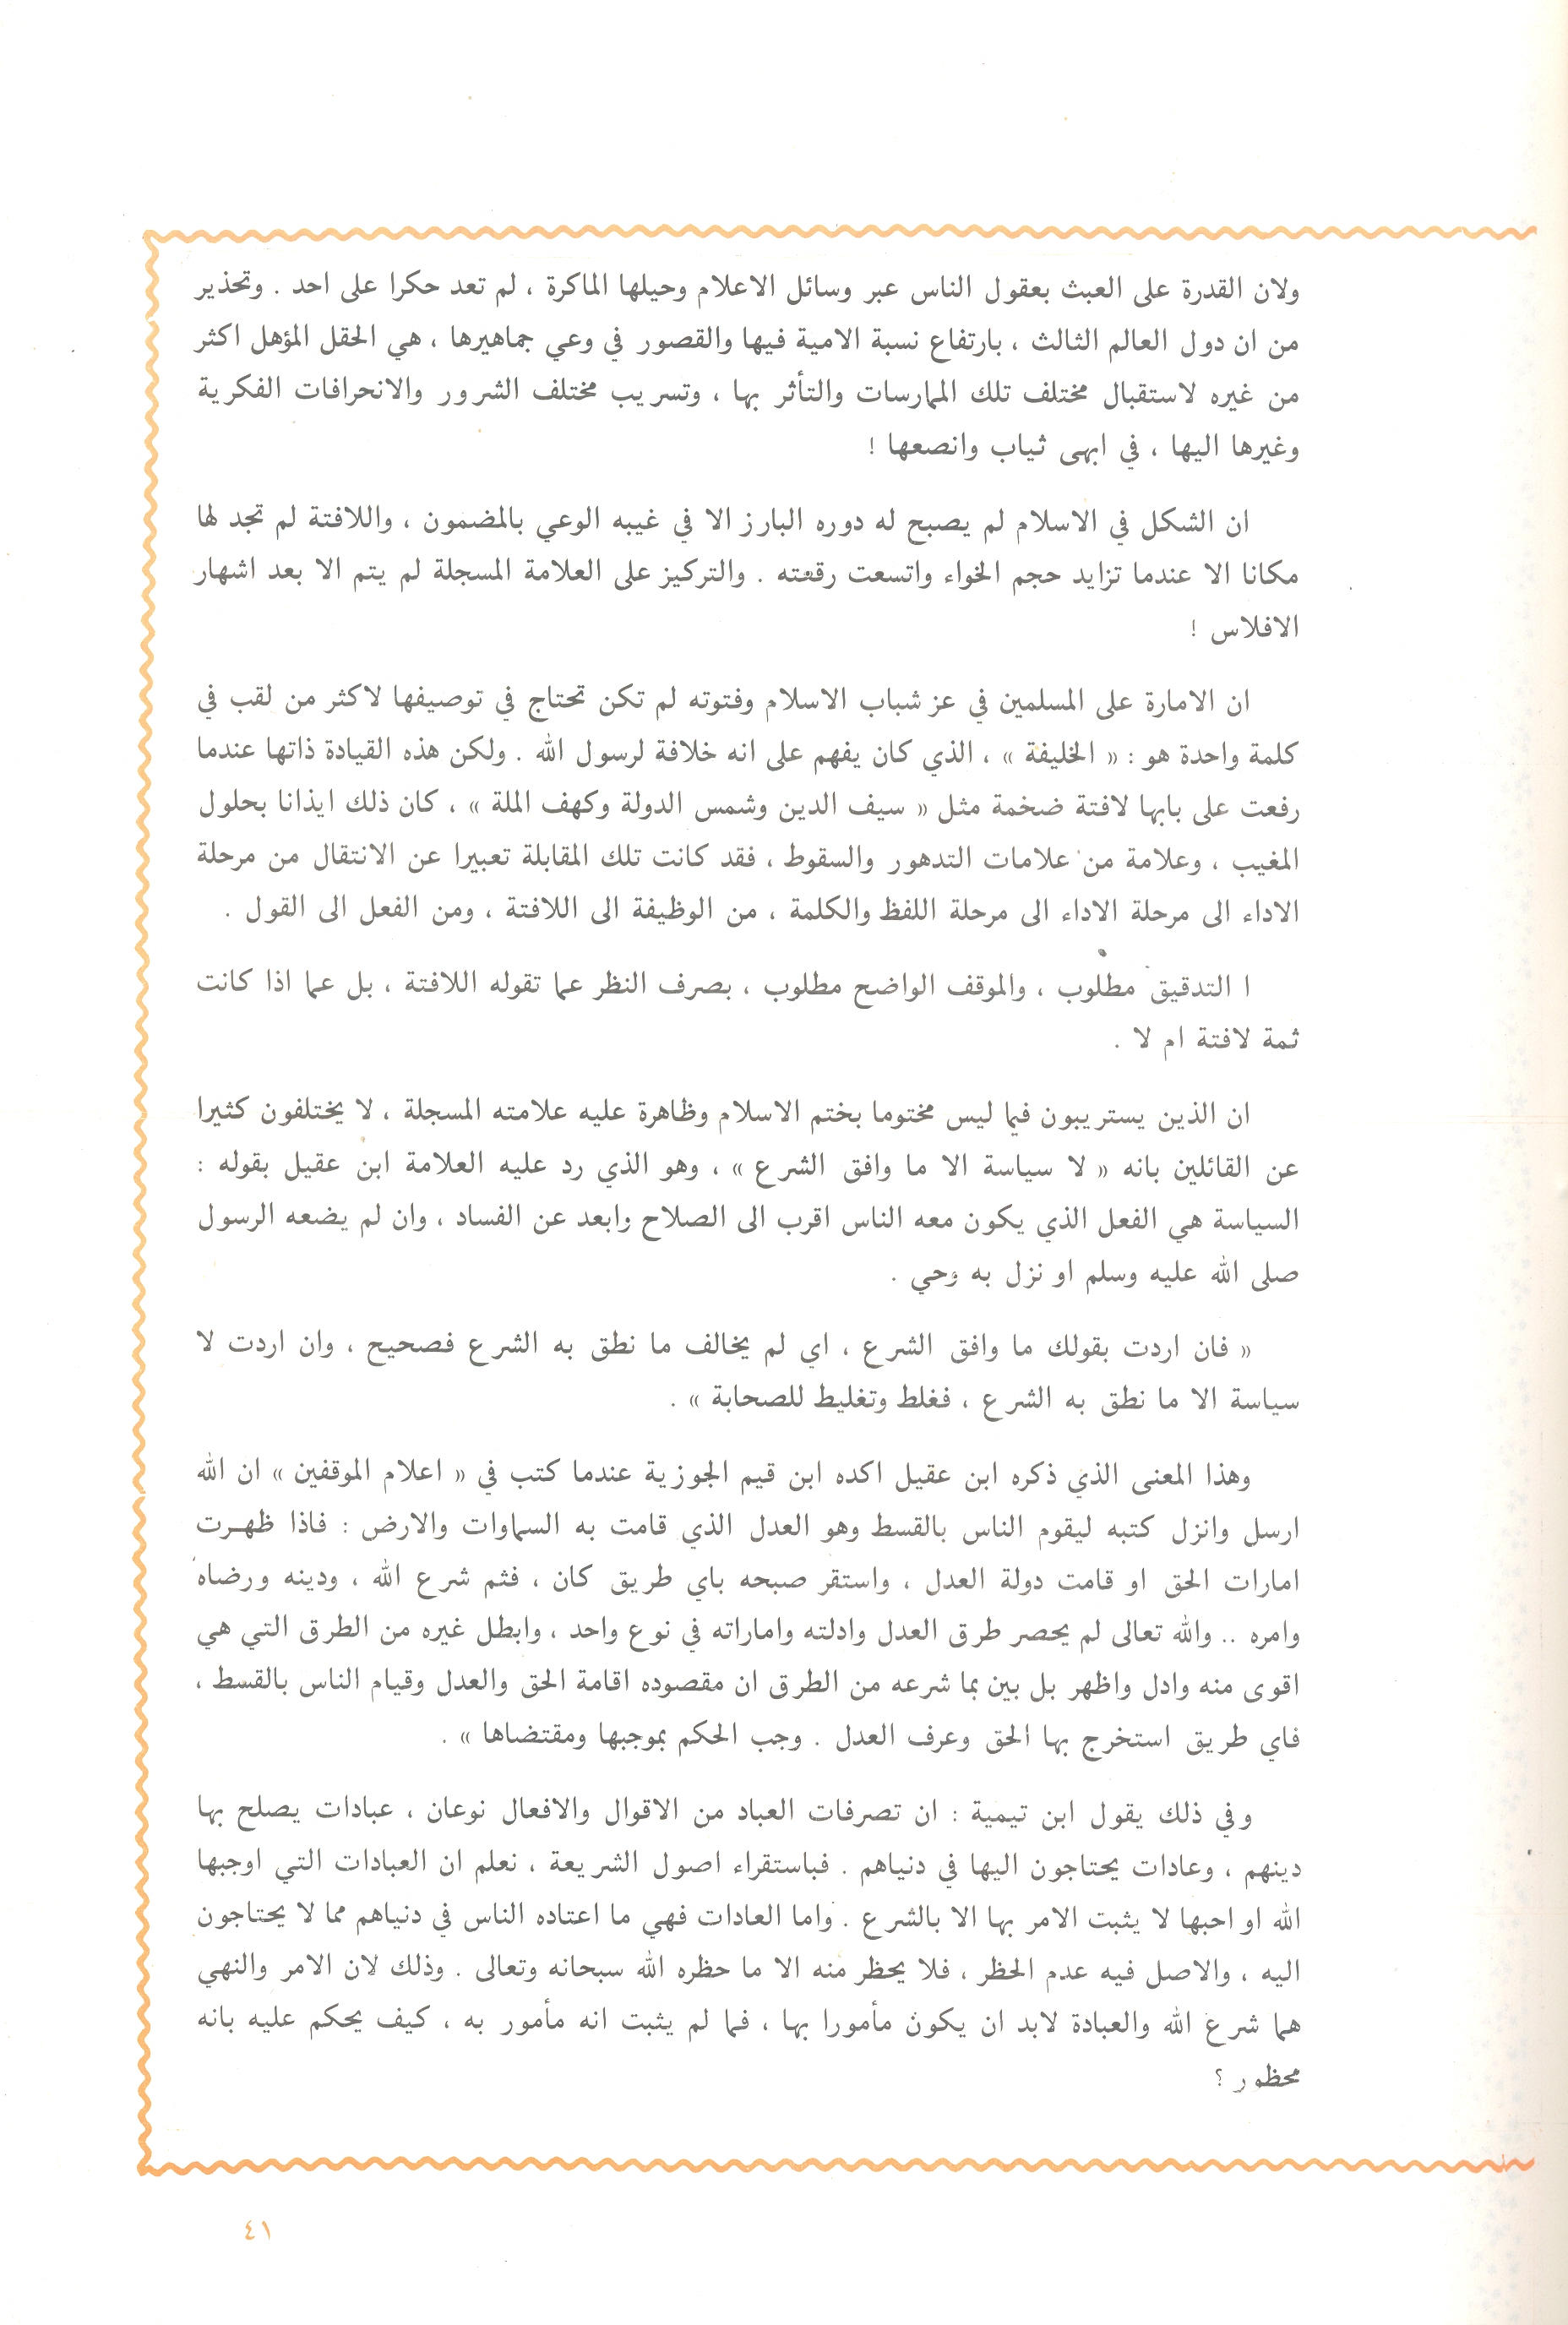 ولان القدرة على العبث بعقول الناس عبر وسائل الاعلام وحيلها الماكرة ، لم تعد حكرا على احد . وتحذير
من ان دول العالم الثالث ، بارتفاع نسبة الامية فيها والقصور في وعي جماهيرها ، هي الحقل المؤهل اكثر
من غيره لاستقبال مختلف تلك الممارسات والتأثر بها ، وتسريب مختلف الشرور والانحرافات الفكرية
وغيرها اليها ، في ابهى ثياب وانصعها !
ان الشكل في الاسلام لم يصبح له دوره البارز الا في غيبه الوعي بالمضمون ، واللافتة لم تجد لها
مكانا الا عندما تزايد حجم الخواء واتسعت رقعته . والتركيز على العلامة المسجلة لم يتم الا بعد اشهار
الافلاس !
ان الامارة على المسلمين في عز شباب الاسلام وفتوته لم تكن تحتاج في توصيفها لاكثر من لقب في
كلمة واحدة هو : « الخليفة » ، الذي كان يفهم على انه خلافة لرسول الله . ولكن هذه القيادة ذاتها عندما
رفعت على بابها لافتة ضخمة مثل « سيف الدين وشمس الدولة وكهف الملة » ، كان ذلك ايذانا بحلول
المغيب ، وعلامة من علامات التدهور والسقوط ، فقد كانت تلك المقابلة تعبيرا عن الانتقال من مرحلة
الاداء الى مرحلة الاداء الى مرحلة اللفظ والكلمة ، من الوظيفة الى اللافتة ، ومن الفعل الى القول .
ا التدقيق مطلوب ، والموقف الواضح مطلوب ، بصرف النظر عما تقوله اللافتة ، بل عما اذا كانت
ثمة لافتة ام لا .
ان الذين يستريبون فيما ليس مختوما بختم الاسلام وظاهرة عليه علامته المسجلة ، لا يختلفون كثيرا
عن القائلين بانه « لا سياسة الا ما وافق الشرع » ، وهو الذي رد عليه العلامة ابن عقيل بقوله :
السياسة هي الفعل الذي يكون معه الناس اقرب الى الصلاح وابعد عن الفساد ، وان لم يضعه الرسول
صلى الله عليه وسلم او نزل به وحي .
« فان اردت بقولك ما وافق الشرع ، اي لم يخالف ما نطق به الشرع فصحيح ، وان اردت لا
سياسة الا ما نطق به الشرع ، فغلط وتغليط للصحابة » .
وهذا المعنى الذي ذكره ابن عقيل اكده ابن قيم الجوزية عندما كتب في « اعلام الموقفين » ان الله
ارسل وانزل كتبه ليقوم الناس بالقسط وهو العدل الذي قامت به السماوات والارض : فاذا ظهرت
امارات الحق او قامت دولة العدل ، واستقر صبحه باي طريق كان ، فثم شرع الله ، ودينه ورضاه
وامره .. والله تعالى لم يحصر طرق العدل وادلته واماراته في نوع واحد ، وابطل غيره من الطرق التي هي
اقوى منه وادل واظهر بل بين بما شرعه من الطرق ان مقصوده اقامة الحق والعدل وقيام الناس بالقسط ،
فاي طريق استخرج بها الحق وعرف العدل . وجب الحكم بموجبها ومقتضاها » .
وفي ذلك يقول ابن تيمية : ان تصرفات العباد من الاقوال والافعال نوعان ، عبادات يصلح بها
دينهم ، وعادات يحتاجون اليها في دنياهم . فباستقراء اصول الشريعة ، نعلم ان العبادات التي اوجبها
الله او احبها لا يثبت الامر بها الا بالشرع . واما العادات فهي ما اعتاده الناس في دنياهم مما لا يحتاجون
اليه ، والاصل فيه عدم الحظر ، فلا يحظر منه الا ما حظره الله سبحانه وتعالى . وذلك لان الامر والنهي
هما شرع الله والعبادة لابد ان يكون مأمورا بها ، فما لم يثبت انه مأمور به ، كيف يحكم عليه بانه
محظور ؟
٤١